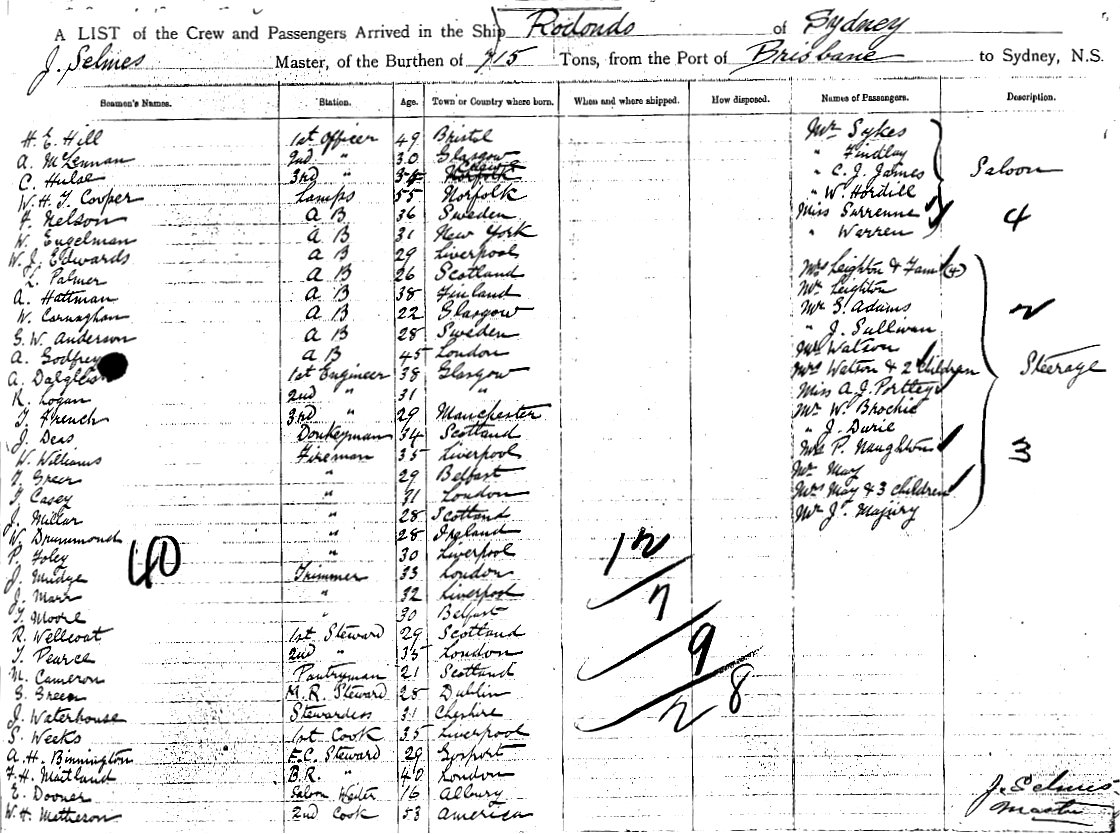 A LIST of the Crew and Passengers Arrived in the Ship Rodondo of Sydney
J. Selmes Master, of the Burthen of 715 Tons, from the Port of Brisbane to Sydney, N.S.
Seamen's Names. Station. Age. Town or Country where born. When and where shipped. How disposed. Names of Passengers. Description.
H. E. Hill 1st Officer 49 Bristol Mr Sykes
A. McLennan 2nd " 30 Glasgow " Findlay
C. Hulse 3rd " Norfolk " C. J. James Saloon
W. H. T. Cooper Lamps 55 Norfolk " W. Hordill
F. Nelson A B 36 Sweden Miss Surrenne 4
W. Engelman A B 31 New York " Warren
W. J. Edwards A B 29 Liverpool
L. Palmer A B 26 Scotland Mrs Leighton & Fam (4)
A. Hattman A B 38 Finland Mr Leighton
W. Carnaghan A B 22 Glasgow Mr G. Adams 2
G. W. Anderson A B 28 Sweden " J. Sullivan
A. Godfrey A B 45 London Mr Watson
A. Dalgleish 1st Engineer 38 Glasgow Mrs Watson & 2 children Steerage
R. Logan 2nd " 31 " Miss A. J. Portley
T. French 3rd " 29 Manchester Mr W. Brochie
J. Deas Donkeyman 34 Scotland " J. Durie
W. Williams Fireman 35 Liverpool Mrs P. Naughton 3
T. Greer " 29 Belfast Mr May
T. Casey " 31 London Mrs May & 3 children
J. Millar " 28 Scotland Mr Js. Majury
W. Drummond " 28 Ireland
P. Foley " 30 Liverpool 12
40
J. Mudge Trimmer 33 London
J. Marr " 32 Liverpool 7
T. Moore " 30 Belfast
R. Wellcoat 1st Steward 29 Scotland 9
T. Pearce 2nd " 35 London
M. Cameron Pantryman 21 Scotland
G. Green M.R. Steward 28 Dublin 28
J. Waterhouse Stewardess 31 Cheshire
S. Weeks 1st Cook 35 Liverpool
A. H. Binnington F.C. Steward 29 Gosport
F. H. Maitland B.R. " 40 London J. Selmes
E. Dooner Saloon Waiter 16 Albury Master
W. H. Matherson 2nd Cook 53 America